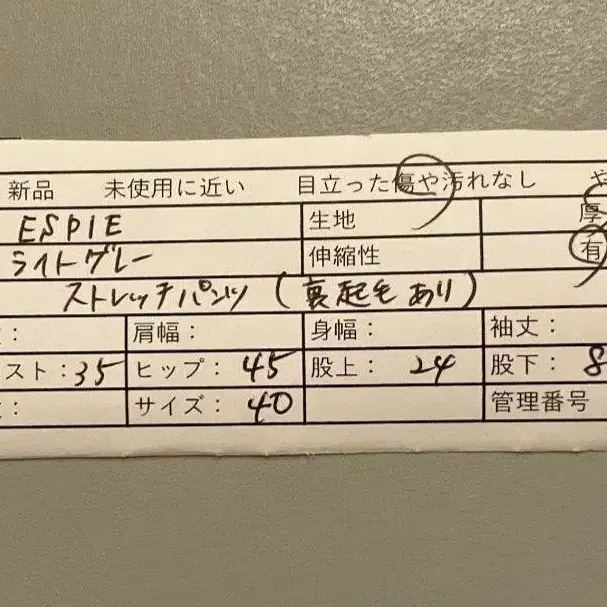 新品 未使用に近い 目立った傷や汚れなし や
ESPIE 生地 厚
ライトグレー 伸縮性 有
ストレッチパンツ (裏起毛あり)
: 肩幅: 身幅: 袖丈:
スト:35 ヒップ:45 股上:24 股下:8
: サイズ:40 管理番号